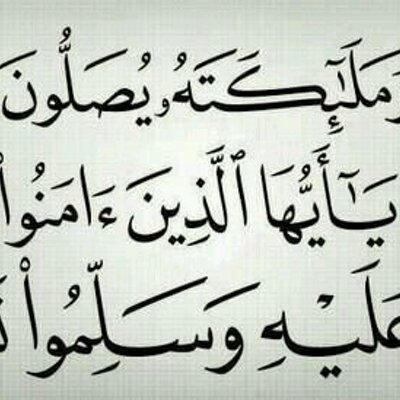 وَمَلَٰٓئِكَتَهُۥ يُصَلُّونَ
يَٰٓأَيُّهَا ٱلَّذِينَ ءَامَنُوا۟
عَلَيْهِ وَسَلِّمُوا۟